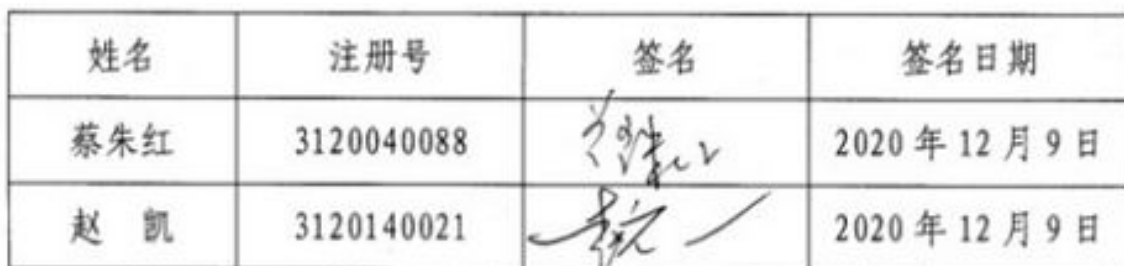 姓名 注册号 签名 签名日期
蔡朱红 3120040088 蔡朱红 2020年12月9日
赵 凯 3120140021 2020年12月9日